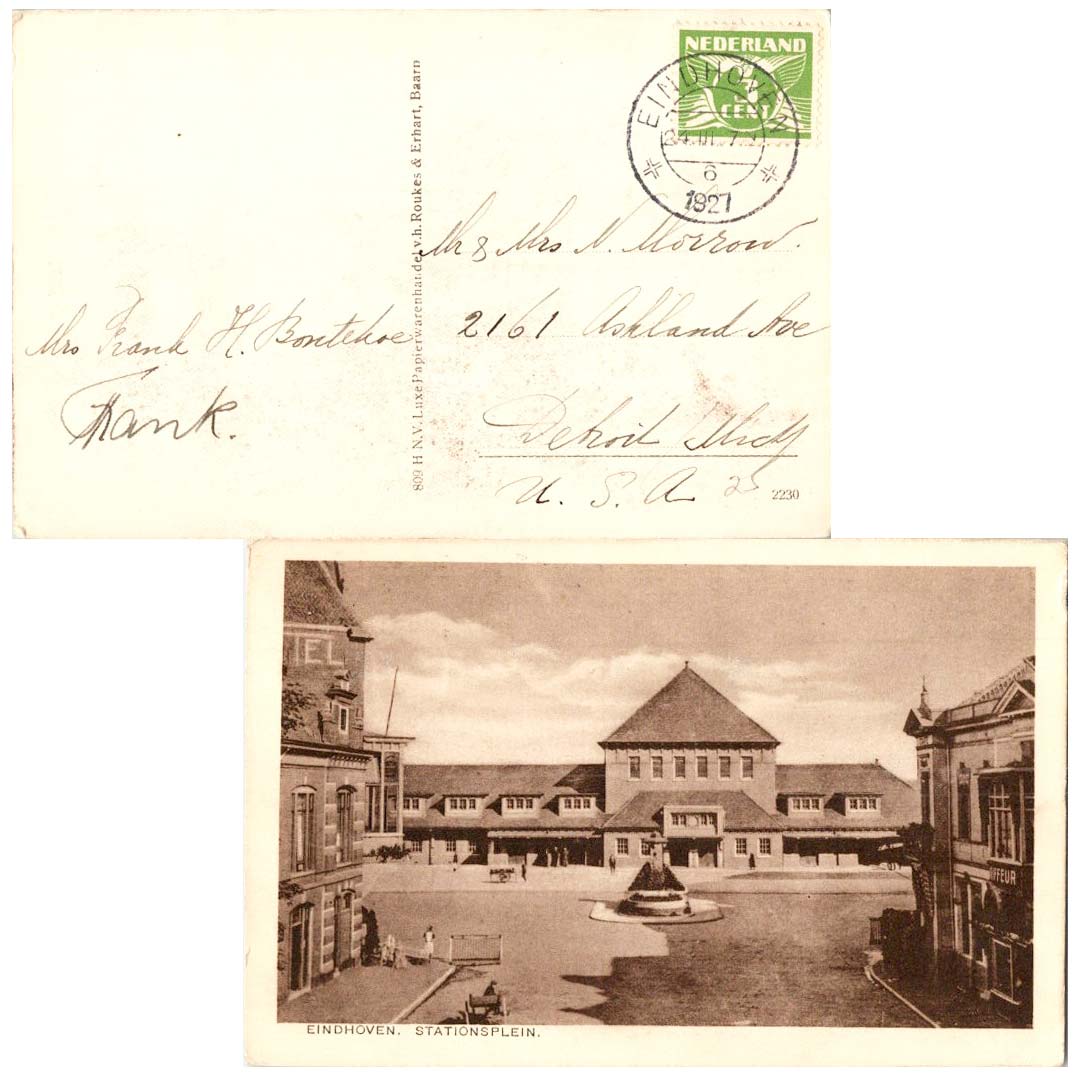 NEDERLAND
CENT
EINDHOVEN
6
1927
809 H N.V. Luxe Papierwarenhandel v.h. Roukes & Erhart, Baarn
Mr & Mrs N. Morrow.
2161 Ashland Ave
Detroit Mich
U. S. A
2230
Mrs Frank H. Bontekoe
Frank.
EINDHOVEN. STATIONSPLEIN.